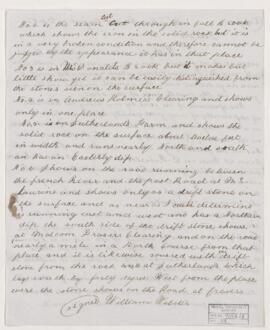 No 2 is the seam cut through in full to rock
which shows the iron in the solid rock but it is
in a very broken condition and therefore cannot be
judged by the appearance it has in that place
No 3 is on McDonalds rock but it makes but
little show yet it can be easily distinguished from
the stones seen on the surface
No 4 is on Andrew Holmes clearing and shows
only in one place
No 5 is on Sutherlands Farm and shows the
solid rock on the surface about twelve feet
in width and runs nearly North and South
an has an Easterly dip
No 6 shows on the road running between
the French River and the post Road at Mc
and shows only as a drift stone on
the surface and as near as I could determine
is running east and west and has a Northern
dip the south side of the drift stone shows
at Malcom Frasers clearing and on the road
nearly a mile in a North course from that
place and it is likewise covered with drift
stone from the rock was at Sutherlands which
lays north by forty degrees West from the place
were the stone shows on the Road at Frasers
signed William Webster